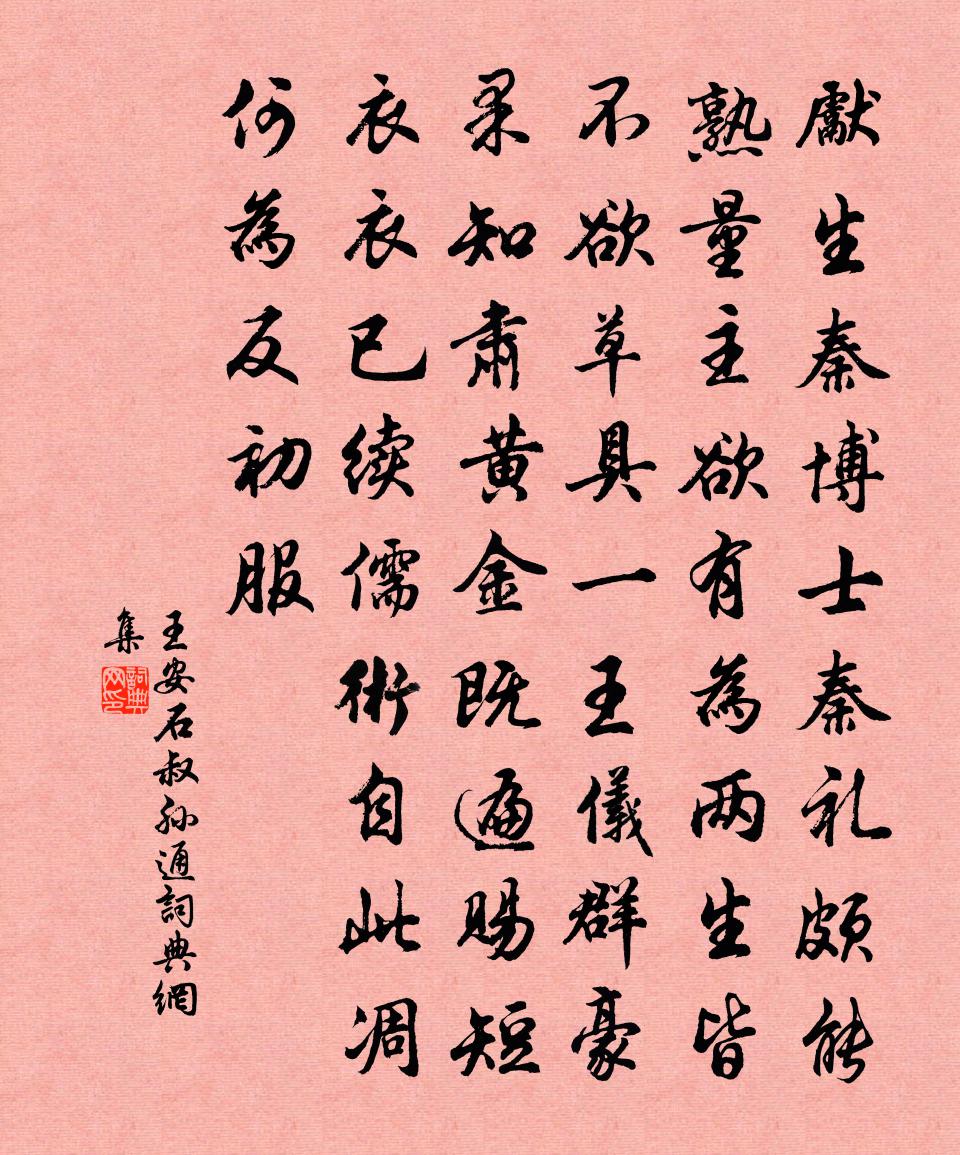 獻生秦博士秦礼頗能
熟量主欲有為两生皆
不欲草具一王儀群豪
果知肅黄金既遍賜短
衣衣已续儒術自此凋
何為反初服
王安石叔孙通詞典網
集
詞典
网印